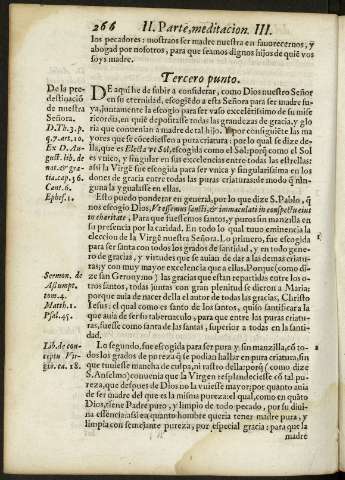 266 II. Parte, meditacion. III.
los pecadores: mostraos ser madre nuestra en fauorecernos, y
abogad por nosotros, para que seamos dignos hijos de quié vos
soys madre.
Tercero punto.
De la pre-
destinació
de nuestra
Señora.
D.Th.3.p.
q.7.art.10.
Ex D. Au-
gust. lib. de
nat. & gra-
tia. cap.36.
Cant.6.
Ephes.1.
DE aquí he de subir a considerar, como Dios nuestro Señor
en su eternidad, escogiò a esta Señora para ser madre su-
ya, juntamente la escogio para ser vaso excelétissimo de su mise
ricordia, en quié depositasse todas las grandezas de gracia, y glo
ria que conuenian a madre de tal hijo. Y por consiguiéte las ma
yores que se cócediessen a pura criatura: por lo qual se dize de-
lla, que es Electa vt Sol, escogida como el Sol: porq como el Sol
es vnico, y singular en sus excelencias entre todas las estrellas:
assi la Virgē fue escogida para ser vnica y singularissima en los
dones de gracia entre todas las puras criaturas: de modo q nin-
guna la ygualasse en ellas.
Esto puedo ponderar en general, por lo que dize S. Pablo, q
nos escogio Dios, Vt essemus sancti, & immaculati in conspectu eius
in charitate, Para que fuessemos santos, y puros sin manzilla en
su presencia por la caridad. En todo lo qual tuuo eminencia la
eleccion de la Virgē nuestra Señora. Lo primero, fue escogida
para ser santa con todos los grados de santidad, y en todo gene-
ro de gracias, y virtudes que se auian de dar a las demas criatu-
ras, y con muy mayor excelencia que a ellas. Porque (como di-
ze san Geronymo) las gracias que estan repartidas entre los o-
tros santos, todas juntas con gran plenitud se dieron a Maria:
porque auia de nacer della el autor de todas las gracias, Christo
Iesus: el qual como es santo de los santos, quiso santificar a la
que auia de ser su tabernaculo, para que entre las puras criatu-
ras, fuesse como santa de las santas, superior a todas en la santi-
dad.
Sermon. de
Assumpt.
tom.4.
Matth.1.
Psal.45.
Lo segundo, fue escogida para ser pura y sin manzilla, có to-
dos los grados de pureza q se podian hallar en pura criatura, sin
que tuuiesse mancha de culpa, ni rastro della: porq (como dize
S. Anselmo) conuenia que la Virgen resplandeciesse có tal pu-
reza, que despues de Dios no la vuiesse mayor: por quanto auia
de ser madre del que es la misma pureza: el qual, como en quáto
Dios, tiene Padre puro, y limpio de todo pecado, por su diui-
na essencia: assi en quanto hombre queria tener madre pura, y
limpia con semejante pureza, por especial gracia: para que la
Lib. de con-
ceptu Vir-
gin. ca. 18.
madre